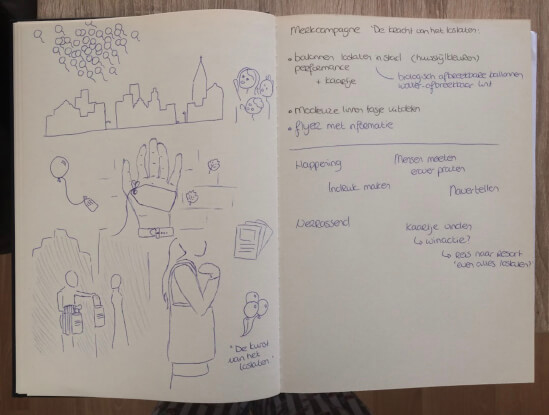 "De kunst
van het
loslaten"
Merkcampagne "De kracht van het loslaten"
• ballonnen loslaten in stad (huwelijksbeurzen)
performance
+ kaartje
biologisch afbreekbare ballonnen
water-afbreekbaar lint
• modieuze linnen tasje uitdelen
• flyer met informatie
Happening
Mensen moeten
erover praten
Indruk maken
Navertellen
Verrassend
Kaartje vinden
↳ winactie?
↳ reis naar Resort
'even alles loslaten'?